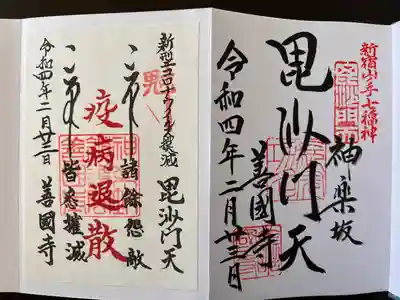 新宿山手七福神
神楽坂
毘沙門天
善國寺
令和四年二月廿三日
毘沙門天
新型コロナウイルス撲滅
毘
諸餘怨敵
疫病退散
皆悉摧滅
善國寺
令和四年二月廿三日